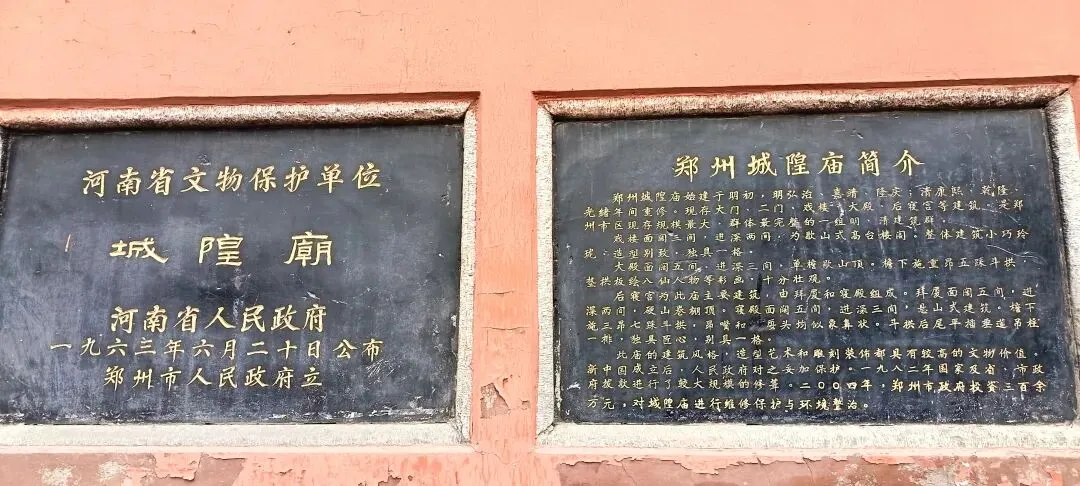 河南省文物保护单位
城隍廟
河南省人民政府
一九六三年六月二十日公布
郑州市人民政府立
郑州城隍庙简介
郑州城隍庙始建于明初，明弘治、嘉靖、隆庆；清康熙、乾隆、
光绪年间重修。现存大门、二门、戏楼、大殿、后寝宫等建筑，是郑
州市区现存规模最大、群体最完整的一组明、清建筑群。
戏楼面阔三间，进深两间，为歇山式高台楼阁。整体建筑小巧玲
珑，造型别致，独具一格。
大殿面阔五间，进深三间，单檐歇山顶。檐下施重昂五踩斗拱，
垫拱板绘八仙人物等彩画，十分壮观。
后寝宫为此庙主要建筑，由拜厦和寝殿组成。拜厦面阔五间，进
深两间，硬山卷棚顶。寝殿面阔五间，进深三间，悬山式建筑，檐下
施三昂七踩斗拱，昂嘴和头均似象鼻状。斗拱后尾平插垂莲吊柱
一排，独具匠心，别具一格。
此庙的建筑风格，造型艺术和雕刻装饰都具有较高的文物价值。
新中国成立后，人民政府对之妥加保护。一九八二年国家及省、市政
府拨款进行了较大规模的修葺。二〇〇四年，郑州市政府投资三百余
万元，对城隍庙进行维修保护与环境整治。